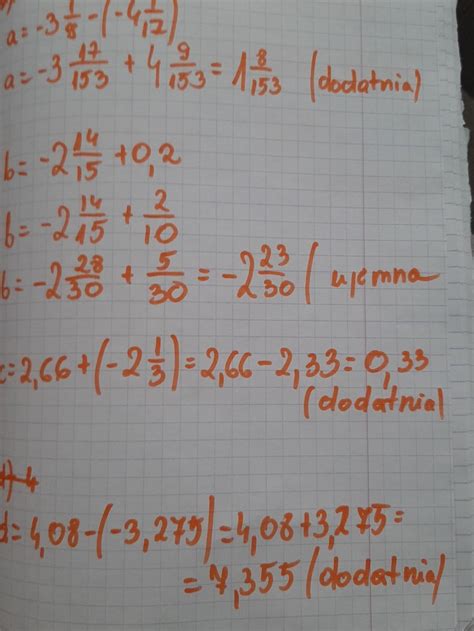 a = -3 1/8 - (-4 1/17)
a = -3 17/153 + 4 9/153 = 1 8/153 (dodatnia)
b = -2 14/15 + 0,2
b = -2 14/15 + 2/10
b = -2 28/30 + 5/30 = -2 23/30 ( ujemna
c = 2,66 + (-2 1/3) = 2,66 - 2,33 = 0,33
(dodatnia)
d) 4
d = 4,08 - (-3,275) = 4,08 + 3,275 =
= 7,355 (dodatnia)